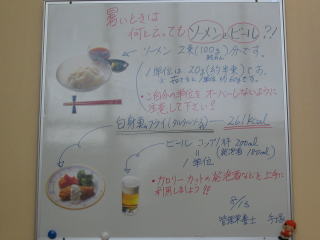 暑いときは
何と云っても ソーメンとビール?!
ソーメン 2束(100g)分です。
1単位は20g(約半束)です。
・ご自分の単位をオーバーしないように
注意して下さい?
白身魚フライ(タルタルソース) 261Kcal
ビール コップ1杯 200ml
1単位
・カロリーカットの発泡酒などを上手に
利用しましょう!!
8/13
管理栄養士